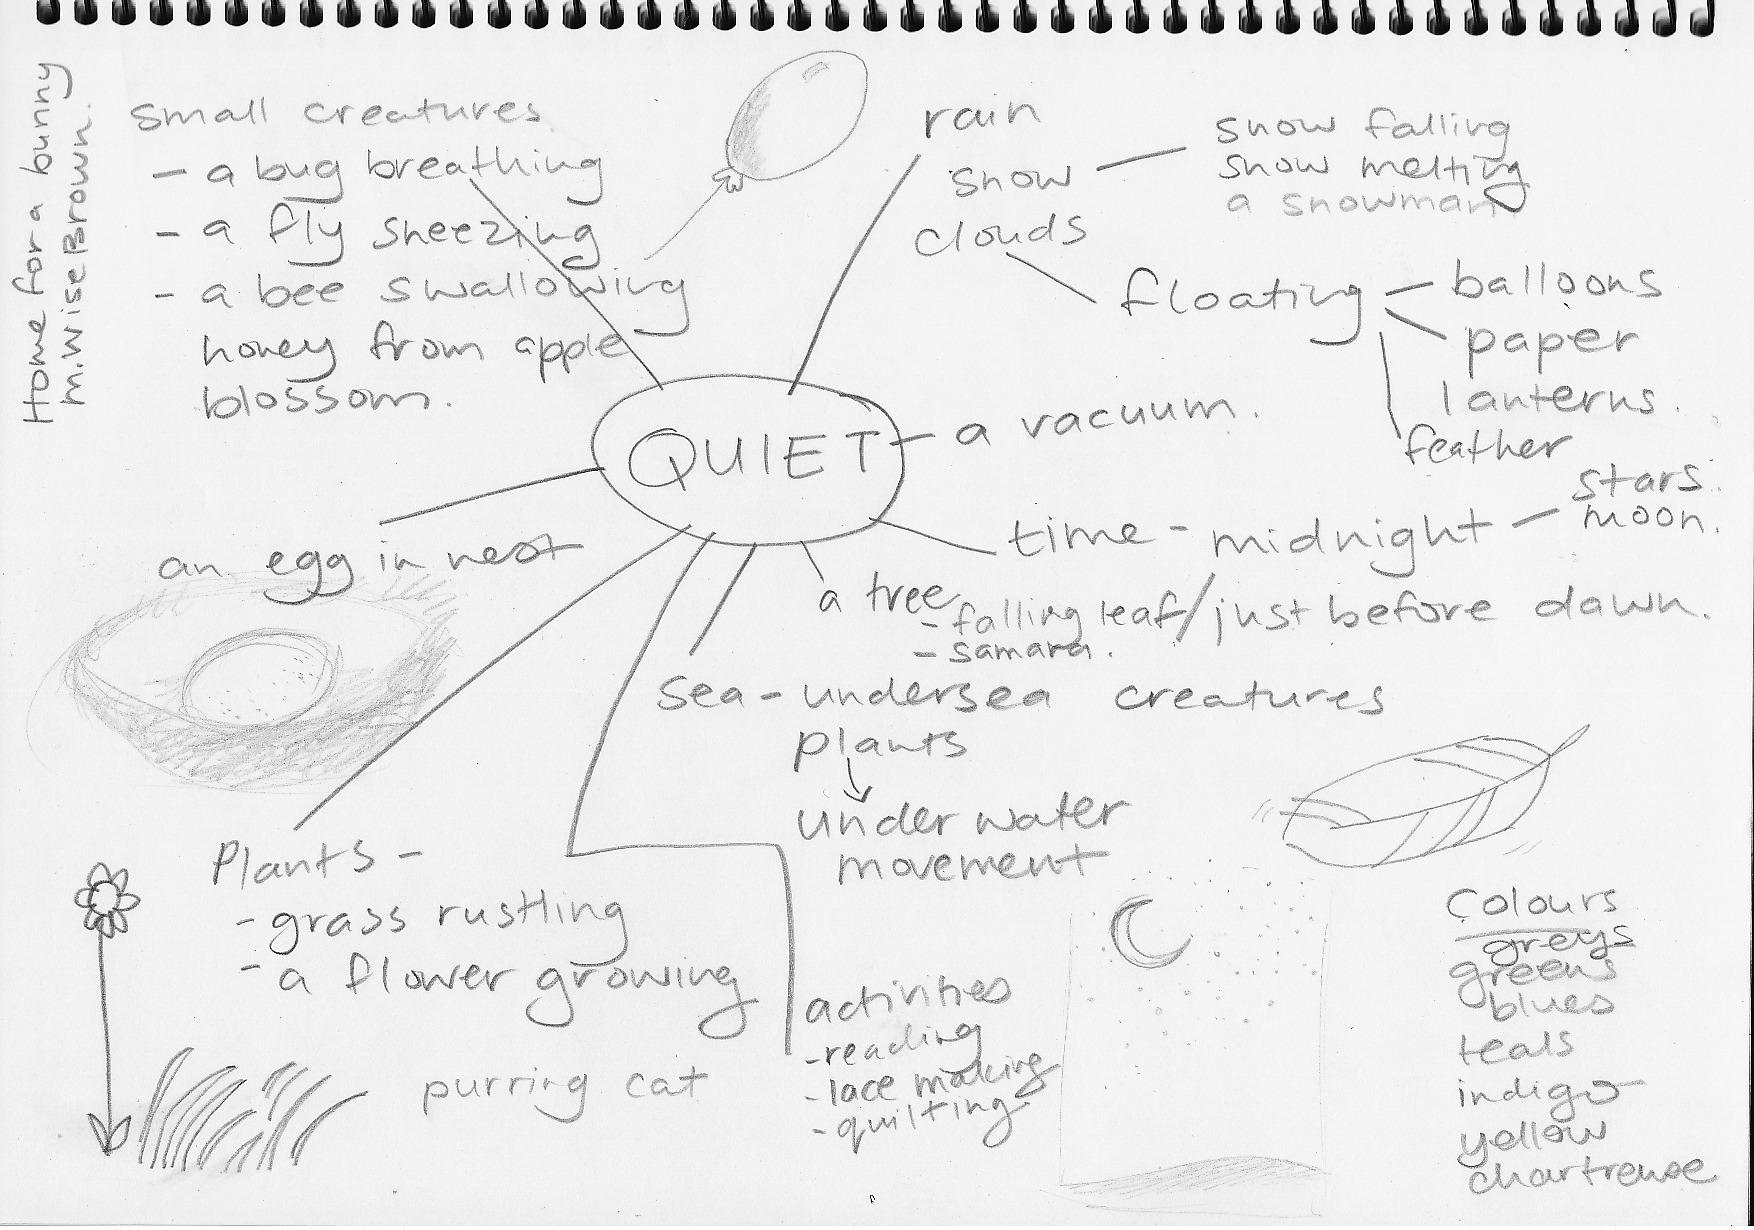 Home for a bunny
M. Wise Brown.
small creatures
- a bug breathing
- a fly sneezing
- a bee swallowing
honey from apple
blossom.
rain
snow
clouds
snow falling
snow melting
a snowman
floating
balloons
paper
lanterns.
feather
QUIET
- a vacuum.
time - midnight
stars.
moon.
/just before dawn.
a tree
- falling leaf
- samara.
an egg in nest
sea - undersea creatures
plants
under water
movement
Plants -
- grass rustling
- a flower growing
purring cat
activities
- reading
- lace making
- quilting
Colours
greys
greens
blues
teals
indigo
yellow
chartreuse